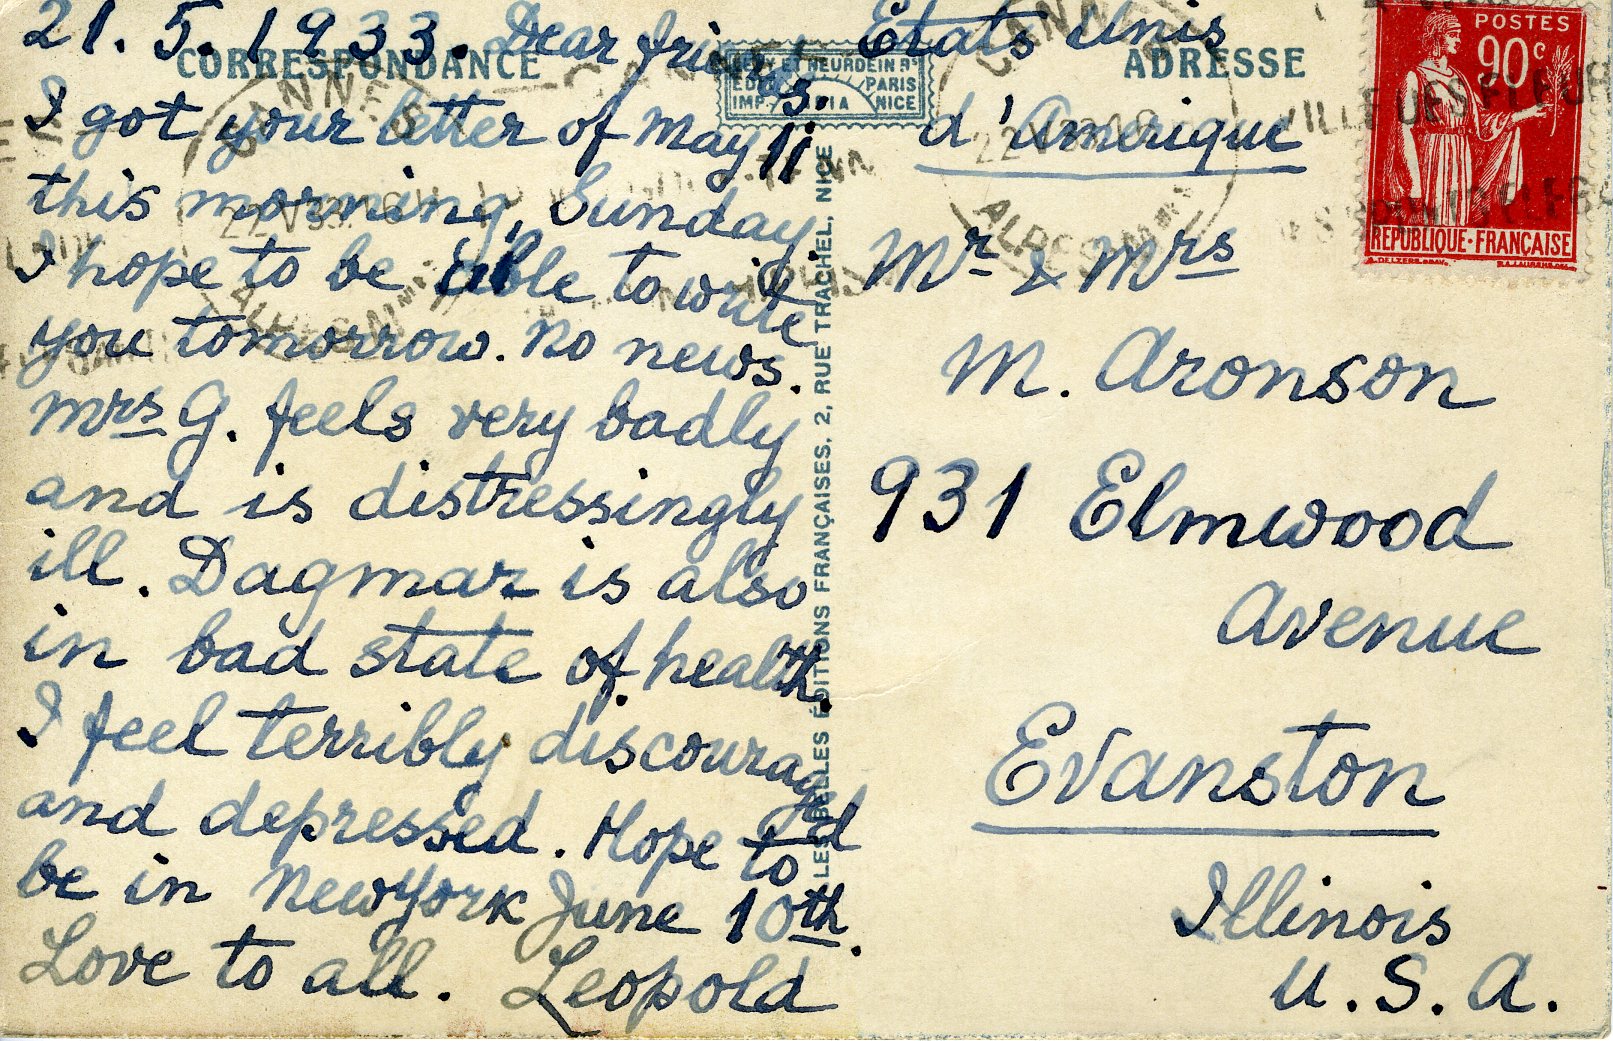 21. 5. 1933. Dear friends.
I got your letter of May 11
this morning, Sunday
I hope to be able to write
you tomorrow. No news.
Mrs G. feels very badly
and is distressingly
ill. Dagmar is also
in bad state of health.
I feel terribly discouraged
and depressed. Hope to
be in New York June 10th.
Love to all. Leopold
CORRESPONDANCE
LEVY ET NEURDEIN Rs
PARIS
IMP.
NICE
LES BELLES ÉDITIONS FRANÇAISES, 2, RUE TRACHEL, NICE
ADRESSE
Etats Unis
d'Amerique
Mr & Mrs
M. Aronson
931 Elmwood
Avenue
Evanston
Illinois
U. S. A.
POSTES
90c
REPUBLIQUE·FRANÇAISE
CANNES
ALPES MMES
CANNES
ALPES MMES
VILLE DES FLEURS